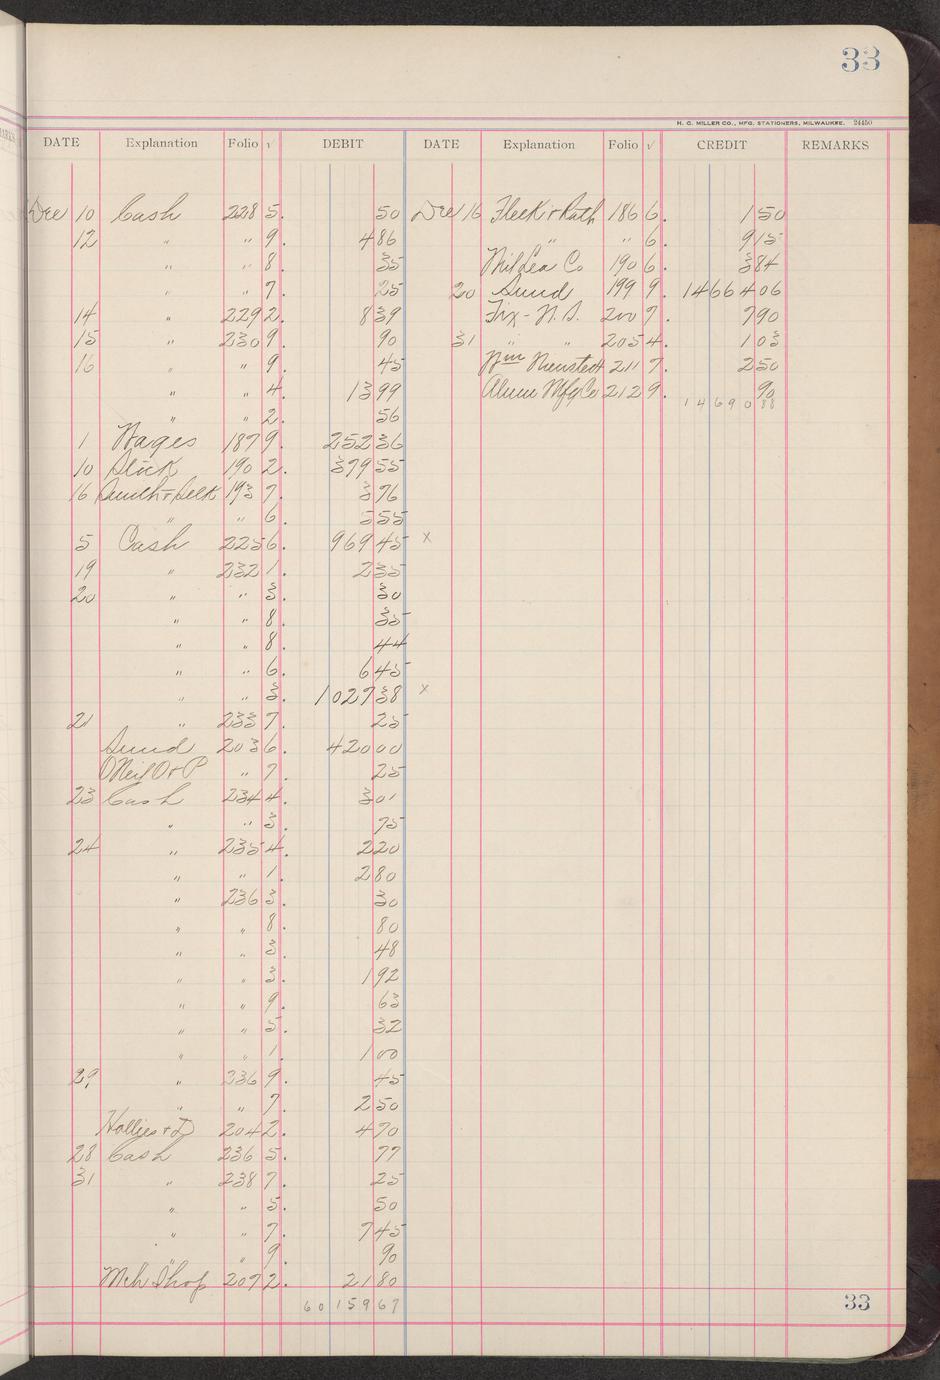 33
H. G. MILLER CO., MFG. STATIONERS, MILWAUKEE. 24450
DATE Explanation Folio √ DEBIT DATE Explanation Folio √ CREDIT REMARKS
Dec 10 Cash 228 5. 50 Dec 16 Fleck & Rath 186 6. 1 50
12 " " 9. 4 86 " " 6. 9 15
" " 8. 35 Mil Lea Co 190 6. 3 84
" " 7. 25 20 Sund 199 9. 14664 06
14 " 229 2. 8 39 Fix - N.S. 200 7. 7 90
15 " 230 9. 90 31 " " 205 4. 1 03
16 " " 9. 45 Wm 211 7. 2 50
" " 4. 13 99 Alum Mfg Co 212 9. 90
" " 2. 56 14690 88
1 Wages 187 9. 252 36
10 Slick 190 2. 379 55
16 Smith & Selk 193 7. 3 76
" " 6. 5 55
5 Cash 225 6. 969 45 x
19 " 232 1. 2 35
20 " " 3. 30
" " 8. 35
" " 8. 44
" " 6. 6 45
" " 3. 1027 38 x
21 " 233 7. 25
Sund 203 6. 420 00
O'Neil O & P " 7. 25
23 Cash 234 4. 3 01
" " 3. 75
24 " 235 4. 2 20
" " 1. 2 80
" 236 3. 30
" " 8. 80
" " 3. 48
" " 3. 1 92
" " 9. 63
" " 5. 32
" " 1. 1 00
29 " 236 9. 45
" " 7. 2 50
Hollies & D 204 2. 4 70
28 Cash 236 5. 77
31 " 238 7. 25
" " 5. 50
" " 7. 7 45
" " 9. 90
Mch Shop 207 2. 21 80
60159 67
33